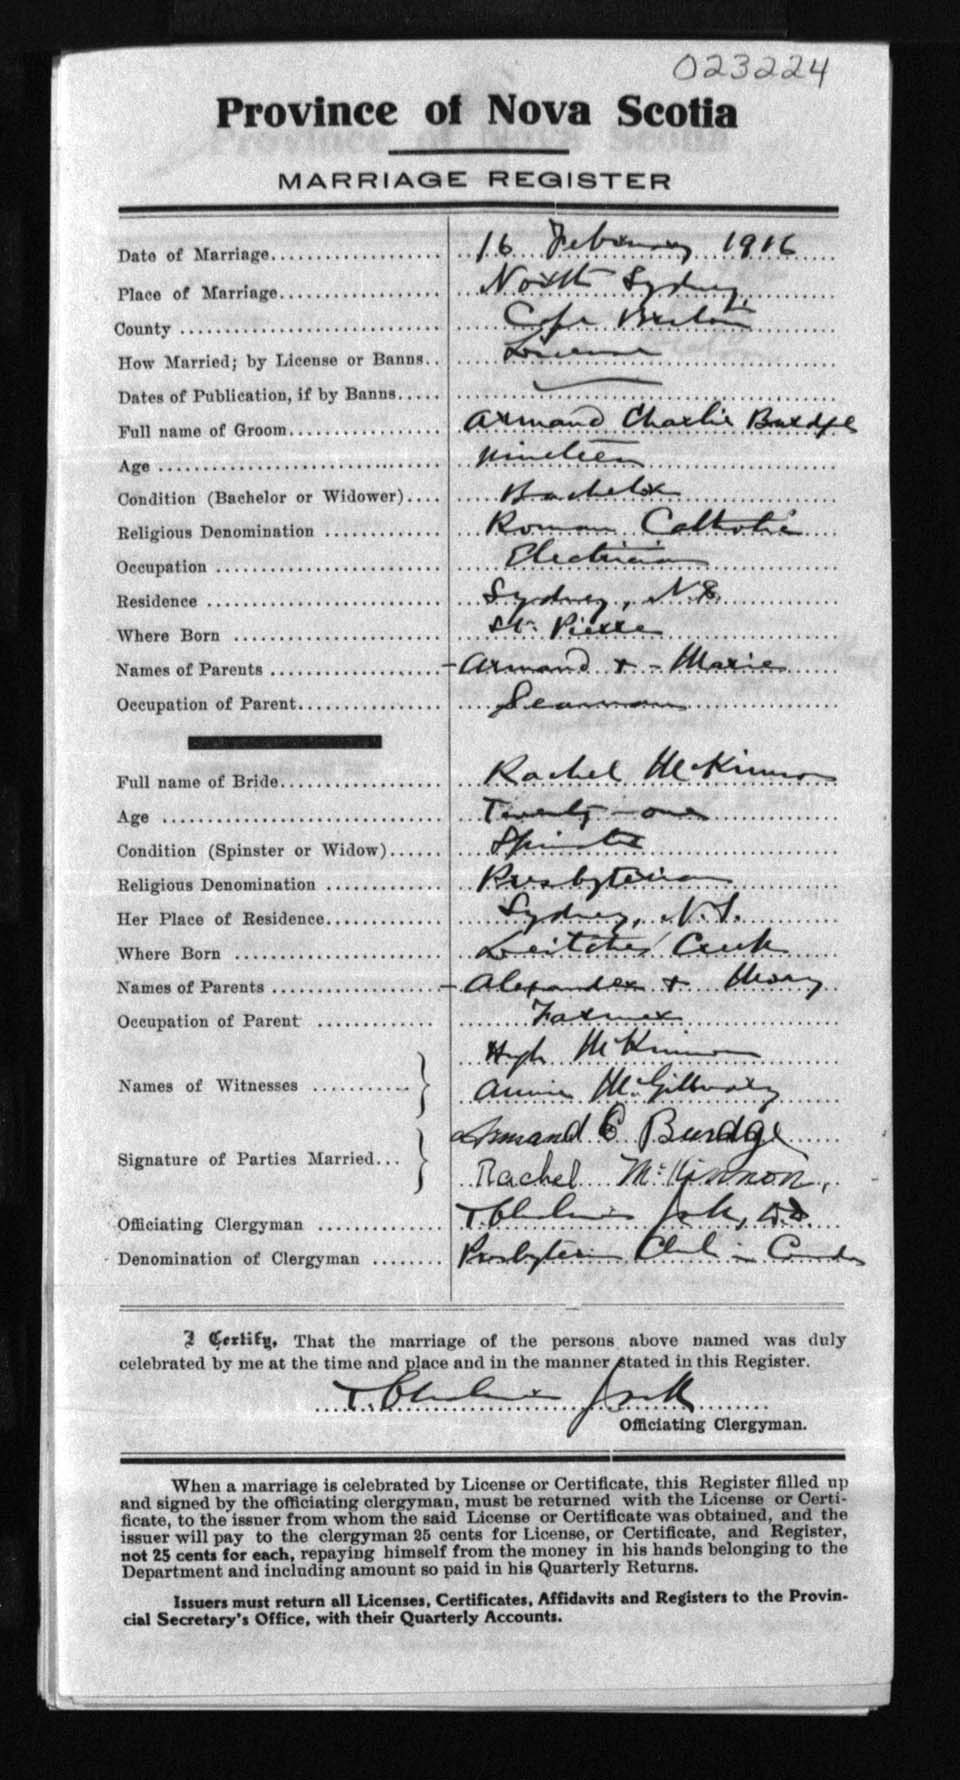 023224
Province of Nova Scotia
MARRIAGE REGISTER
Date of Marriage 16 February 1916
Place of Marriage North Sydney,
County Cape Breton
How Married; by License or Banns License
Dates of Publication, if by Banns
Full name of Groom Armand Charlie Burdge
Age nineteen
Condition (Bachelor or Widower) Bachelor
Religious Denomination Roman Catholic
Occupation Electrician
Residence Sydney, N.S.
Where Born St. Pierre
Names of Parents Armand + Marie
Occupation of Parent Seaman
Full name of Bride Rachel McKinnon
Age Twenty-one
Condition (Spinster or Widow) Spinster
Religious Denomination Presbyterian
Her Place of Residence Sydney, N.S.
Where Born Leitches Creek
Names of Parents Alexander + Mary
Occupation of Parent Farmer
Names of Witnesses Hugh McKinnon
Annie McGillivray
Signature of Parties Married Armand C Burdge
Rachel McKinnon,
Officiating Clergyman T. Chalmers Jack, D.D.
Denomination of Clergyman Presbyterian Church in Canada
I Certify, That the marriage of the persons above named was duly
celebrated by me at the time and place and in the manner stated in this Register.
T. Chalmers Jack
Officiating Clergyman.
When a marriage is celebrated by License or Certificate, this Register filled up
and signed by the officiating clergyman, must be returned with the License or Certi-
ficate, to the issuer from whom the said License or Certificate was obtained, and the
issuer will pay to the clergyman 25 cents for License, or Certificate, and Register,
not 25 cents for each, repaying himself from the money in his hands belonging to the
Department and including amount so paid in his Quarterly Returns.
Issuers must return all Licenses, Certificates, Affidavits and Registers to the Provin-
cial Secretary's Office, with their Quarterly Accounts.